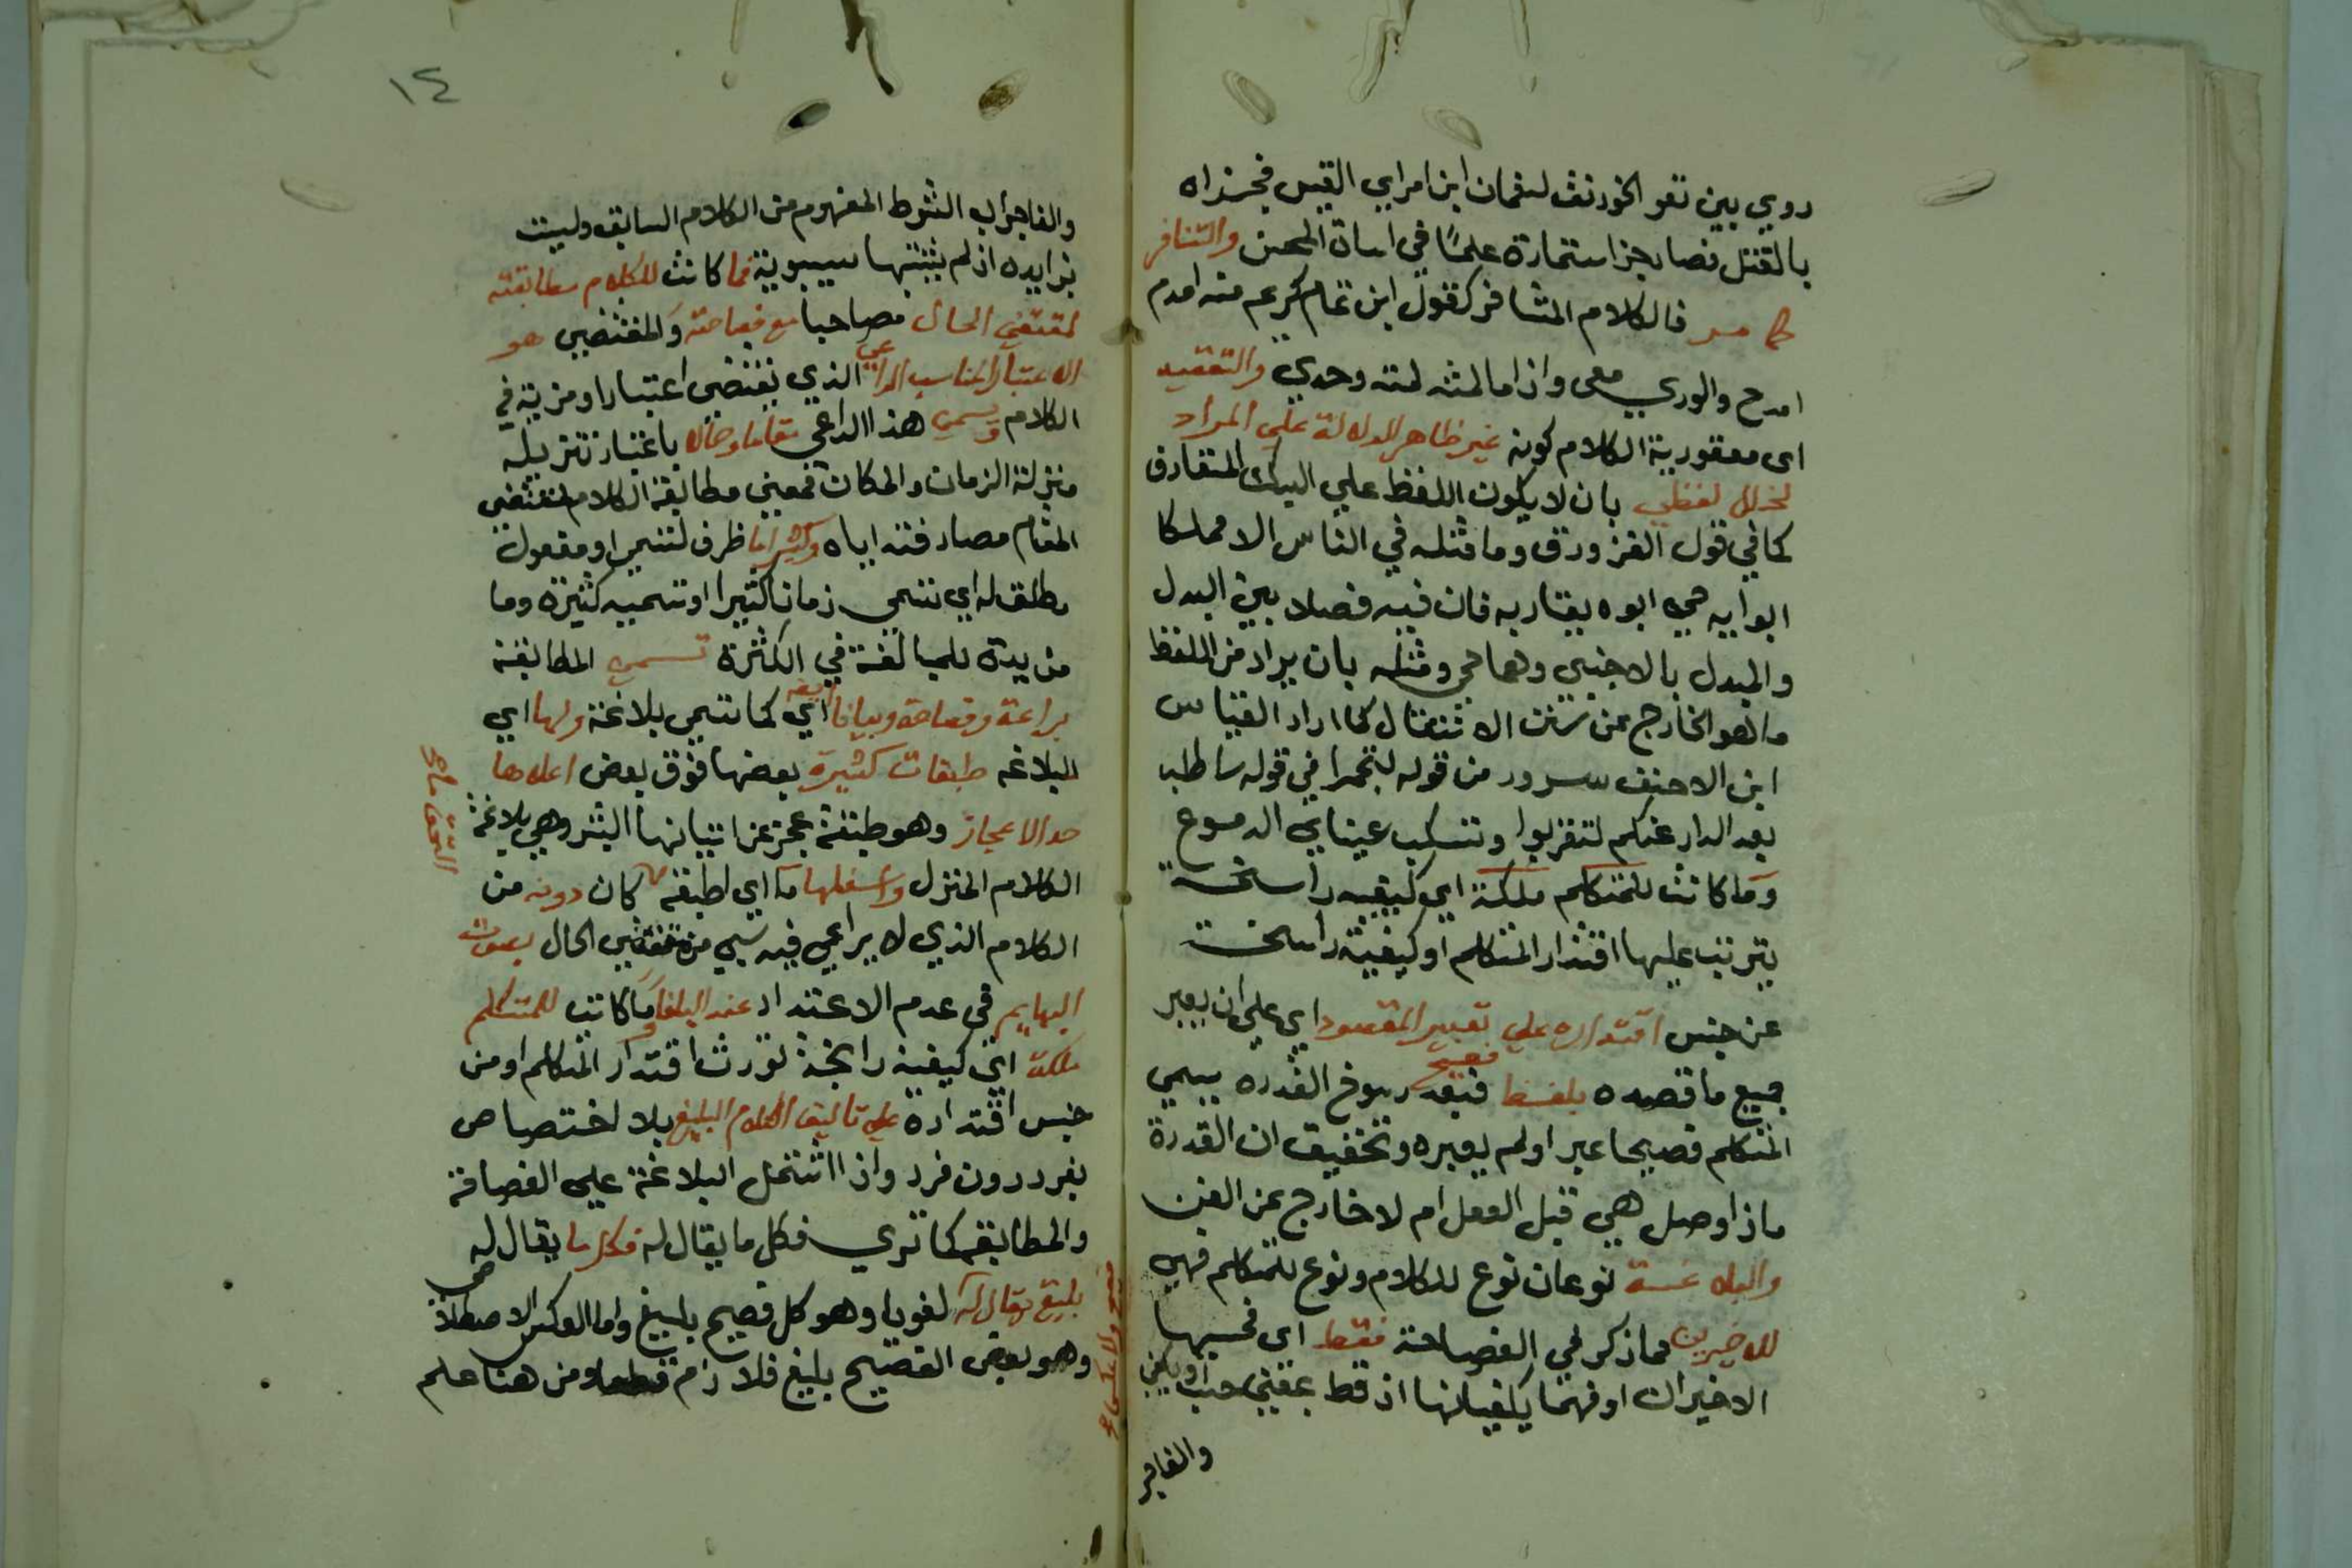 روي بين تعو الخورنق لنعمان ابن امراي القيس فجزاه
بالقتل فصار جزا ستمارة علمًا في اساة المحسن والتنافر
كما مر فالكلام المتنافر كقول ابن تمام كريم متى امدم
امدح والوري معى واذا ما لمته لمته وحدي والتعقيد
اى معقودية الكلام كونه غير ظاهر الدلالة على المراد
لخلل لفظي بان لا يكون اللفظ علي المتعارف
كما في قول الفرزدق وما مثله في الناس الا مملكا
ابوا ايه حي ابوه يقاربه فان فيه فصلا بين البدل
والمبدل بالاجنبي وهما حي ومثله بان يراد من اللفظ
ما هو الخارج عن سنن الاستعمال كما اراد القياس
ابن الاحنف سرور من قوله لتجمدا في قوله ساطلب
بعد الدار عنكم لتقربوا وتسكب عيناي الدموع
وما كانت للمتكلم ملكة اي كيفيه راسخة
يترتب عليها اقتدار المتكلم او كيفية راسخة
عن جنس اقتداره علي تعبير المقصود اي علي ان يعبر
جميع ما قصده بلفظ فصيح فبعد رسوخ القدره يسمي
المتكلم فصيحا عبر او لم يعبره وتحقيق ان القدرة
ماذا وصل هي قبل الفعل ام لا خارج عن الفن
والبلاغة نوعان نوع للكلام ونوع للمتكلم فهي
للاخيرين مما ذكر في الفصاحة فقط اى فحسبها
الاخيران او فهما يكفيانها اذ قط بمعني حسب او يكفي
والفا جر
١٤
والفا جواب الشرط المفهوم من الكلام السابق وليست
بزايده اذ لم يثبتها سيبويه فما كانت للكلام مطابقته
لمقتضي الحال مصاحبا مع فصاحته والمقتضي هو
الاعتبار المناسب الداعي الذي يقتضى اعتبارا ومزية في
الكلام ويسمي هذا الداعي مقاما وحالا باعتبار تنزيله
منزلة الزمان والمكان فمعني مطابقة الكلام لمقتضي
المقام مصادفته اياه وكثيرا ما ظرف لتسمي او مفعول
مطلق له اي تسمي زمانا كثيرا او تسميه كثيره وما
مزيدة للمبالغة في الكثرة تسمي المطابقة
براعة وفصاحة وبيانا ايضا اي كما تسمي بلاغة ولها اي
البلاغه طبقات كثيرة بعضها فوق بعض اعلاها
حد الاعجاز وهو طبقة عجز عن اتيانها البشر وهي بلاغة
الكلام المنزل واسفلها ما اي طبقه كان دونه من
الكلام الذي لا يراعي فيه شي من مقتضي الحال بصوت
البهايم في عدم الاعتداد عند البلغا وما كانت للمتكلم
ملكة اي كيفية راسخة تورث اقتدار المتكلم او من
جنس اقتداره على تاليف الكلام البليغ بلا اختصاص
بفرد دون فرد واذا اشتمل البلاغة علي الفصاحة
والمطابقه كما تري فكل ما يقال له فكل ما يقال له
بليغ يقال له لغويا وهو كل فصيح بليغ واما العكس الاصطلاحي
وهو بعض الفصيح بليغ فلازم قطعا ومن هنا علم
التحق ما مح
فصيح ولا عكس مح